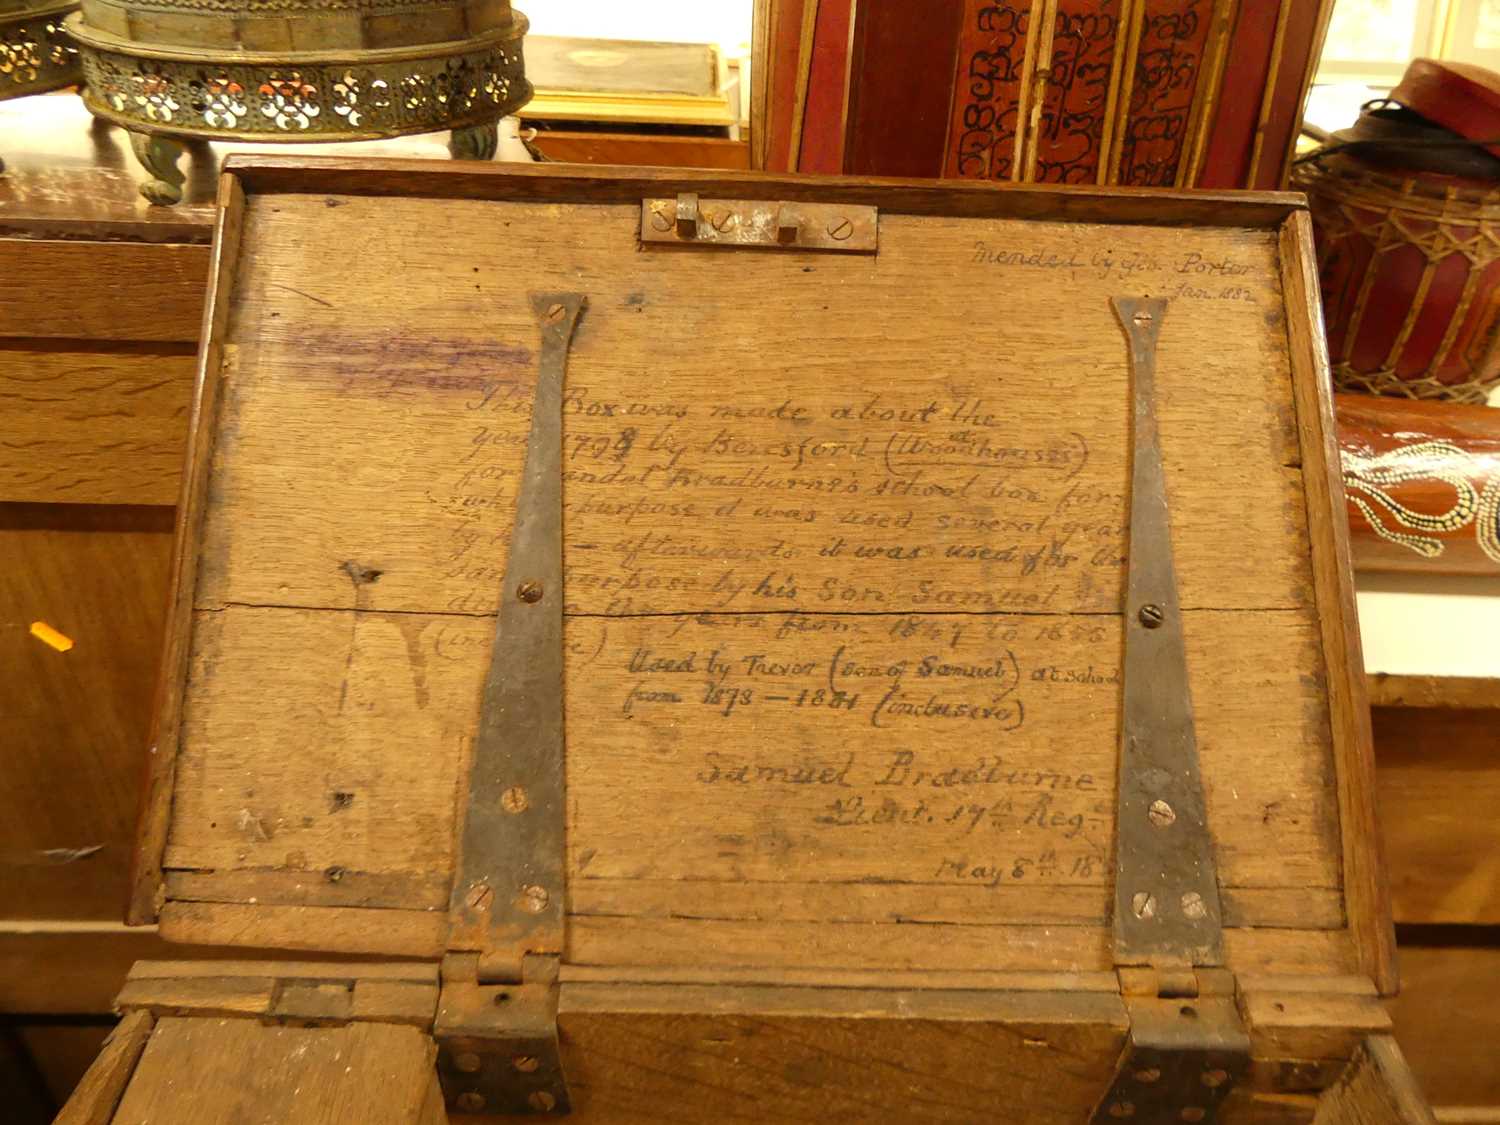 Mended by Geo. Porter
Jan. 1882
This Box was made about the
year 1798 by Beresford (at Woodhouses)
for Bradburne's school box for
which purpose it was used several years
by — afterwards it was used for the
same purpose by his Son Samuel
the years from 1847 to 1855
(inclusive)
Used by Trevor (son of Samuel) at school
from 1873 — 1881 (inclusive)
Samuel Bradburne
Lieut. 17th Regt
May 8th 18